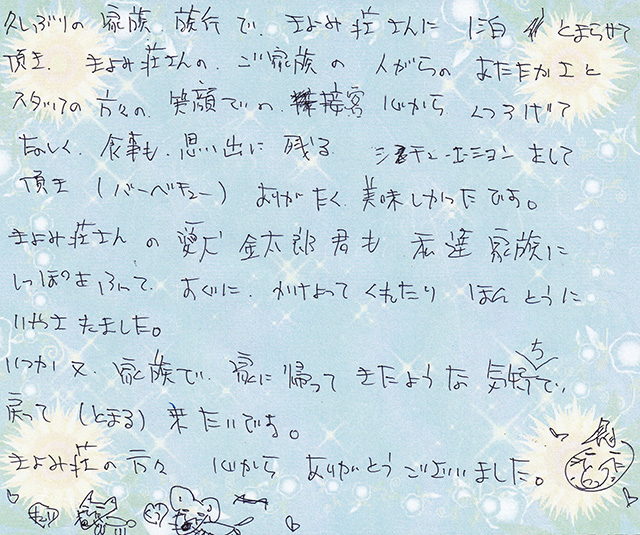 久しぶりの 家族 旅行で、きよみ荘さんに 1泊 とまらせて
頂き、きよみ荘さんの、ご家族の 人がらの あたたかさと
スタッフの方々の、笑顔での 接客 心から くつろげて
たのしく、食事も、思い出に 残る シチュエーションをして
頂き (バーベキュー) ありがたく、美味しかったです。
きよみ荘さんの 愛犬 金太郎君も 私達 家族に
しっぽをふって、すぐに、かけよって くれたり ほんとうに
いやされました。
いつか又、家族で、家に帰って きたような 気持ちで、
戻って (とまる) 来たいです。
きよみ荘の方々 心から ありがとうございました。